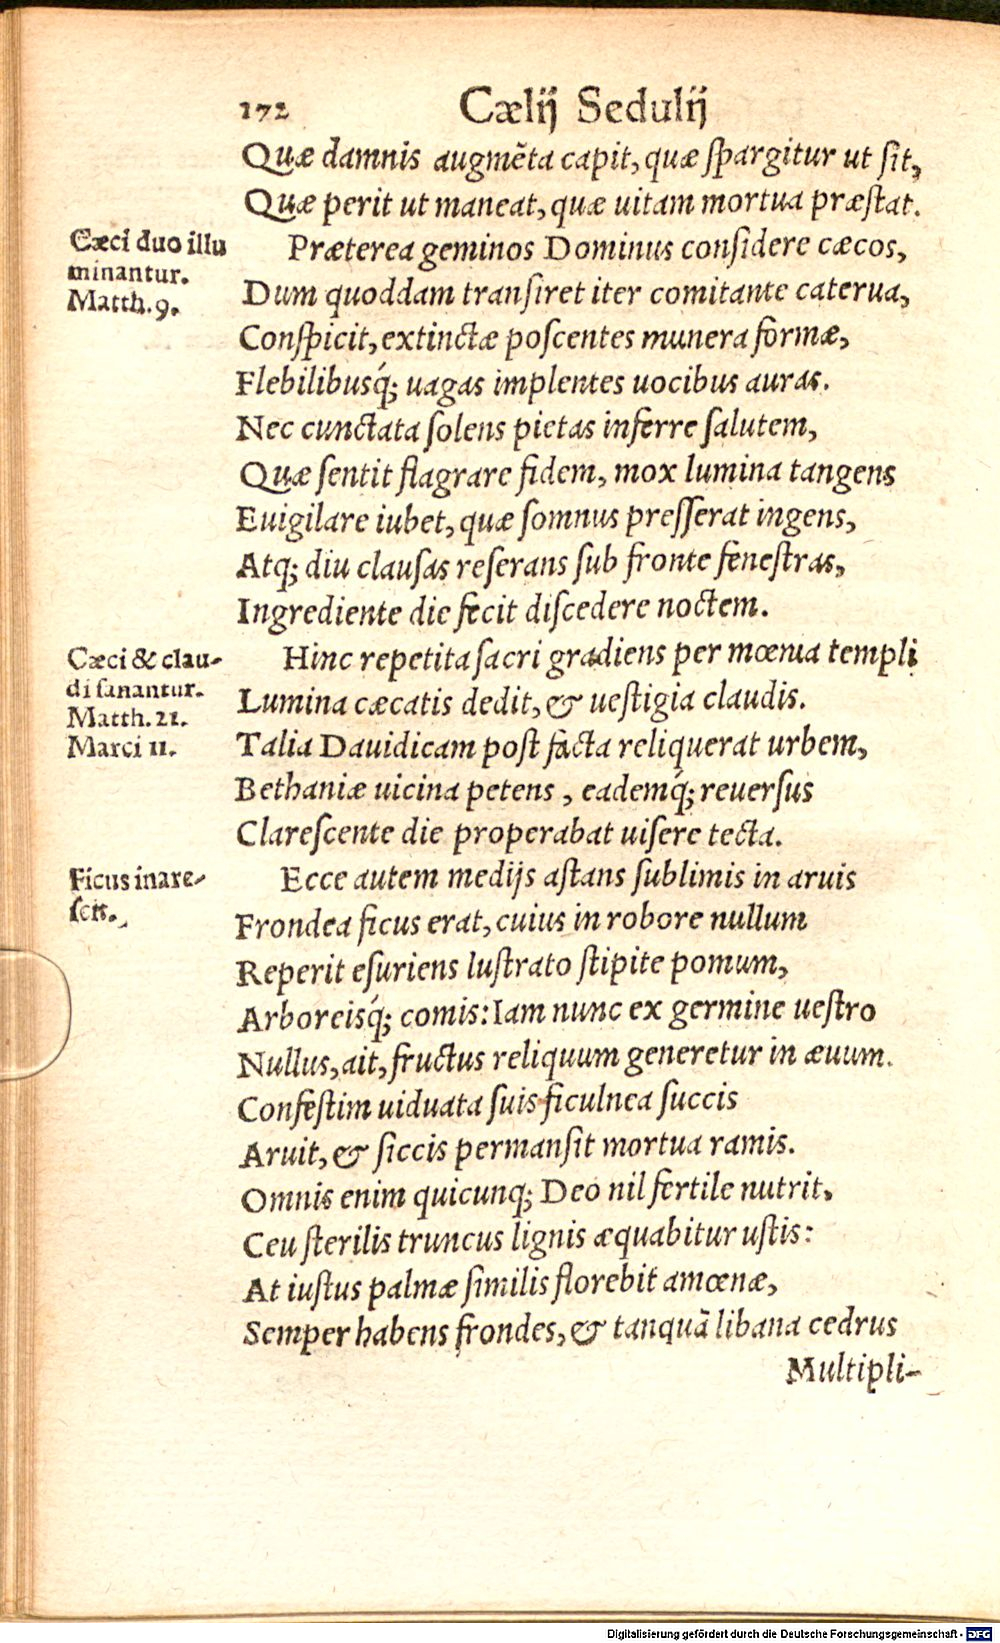 172 Cælij Sedulij
Quæ damnis augmẽta capit, quæ ſpargitur ut ſit,
Quæ perit ut maneat, quæ uitam mortua præſtat.
Cæci duo illu
minantur.
Matth. 9.
Præterea geminos Dominus conſidere cæcos,
Dum quoddam tranſiret iter comitante caterua,
Conſpicit, extinctæ poſcentes munera formæ,
Flebilibusq́; uagas implentes uocibus auras.
Nec cunctata ſolens pietas inferre ſalutem,
Quæ ſentit flagrare fidem, mox lumina tangens
Euigilare iubet, quæ ſomnus preſſerat ingens,
Atq; diu clauſas reſerans ſub fronte feneſtras,
Ingrediente die fecit diſcedere noctem.
Cæci & clau-
di ſanantur.
Matth. 21.
Marci 11.
Hinc repetita ſacri gradiens per mœnia templi
Lumina cæcatis dedit, & ueſtigia claudis.
Talia Dauidicam poſt facta reliquerat urbem,
Bethaniæ uicina petens, eademq́; reuerſus
Clareſcente die properabat uiſere tecta.
Ficus inare-
ſcit.
Ecce autem medijs aſtans ſublimis in aruis
Frondea ficus erat, cuius in robore nullum
Reperit eſuriens luſtrato ſtipite pomum,
Arboreisq́; comis: Iam nunc ex germine ueſtro
Nullus, ait, fructus reliquum generetur in æuum.
Confeſtim uiduata ſuis ficulnea ſuccis
Aruit, & ſiccis permanſit mortua ramis.
Omnis enim quicunq; Deo nil fertile nutrit,
Ceu ſterilis truncus lignis æquabitur uſtis:
At iuſtus palmæ ſimilis florebit amœnæ,
Semper habens frondes, & tanquã libana cedrus
Multipli-
Digitalisierung gefördert durch die Deutsche Forschungsgemeinschaft - DFG